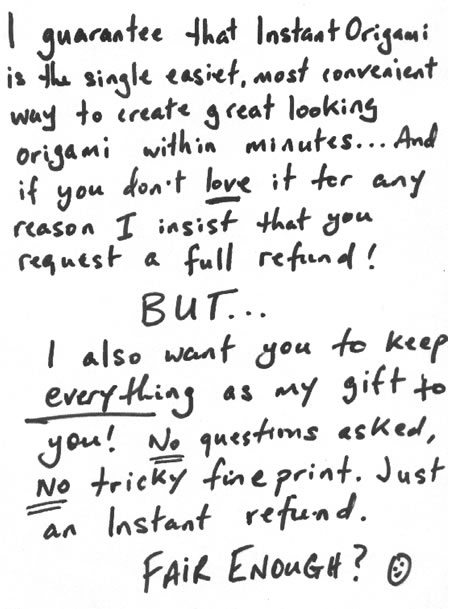 I guarantee that Instant Origami
is the single easiet, most convenient
way to create great looking
origami within minutes... And
if you don't love it for any
reason I insist that you
request a full refund!
BUT...
I also want you to keep
everything as my gift to
you! No questions asked,
No tricky fine print. Just
an Instant refund.
FAIR ENOUGH? ☺